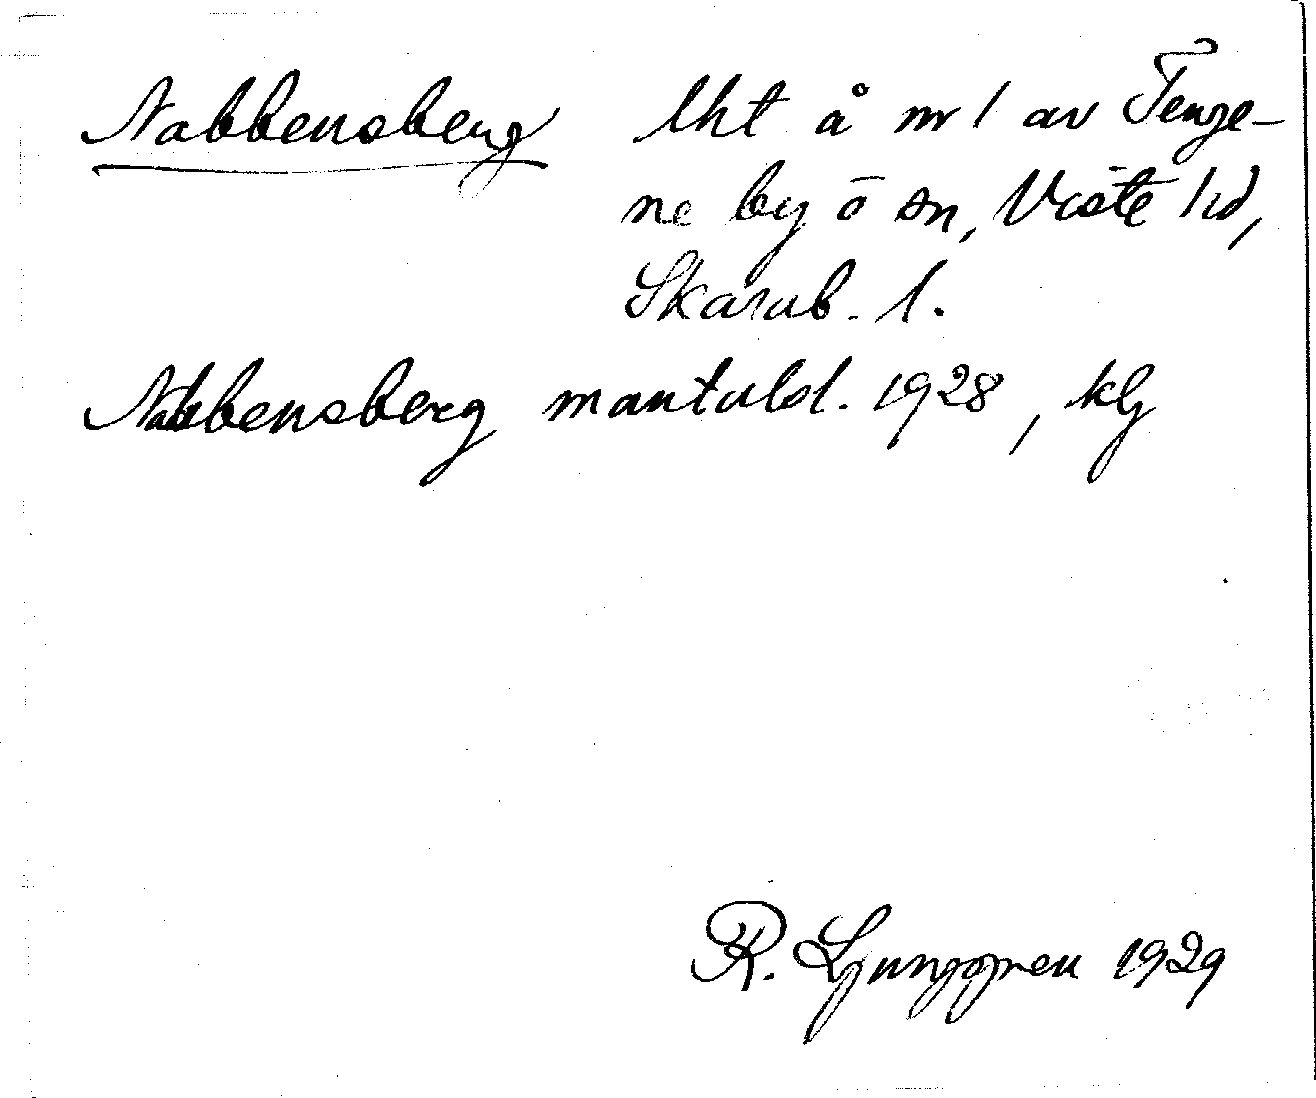 Nabbensberg lht å nr 1 av Tenge-
ne by o sn, Viste hd,
Skarab. l.
Nabbensberg mantald. 1928, klg
R. Ljunggren 1929